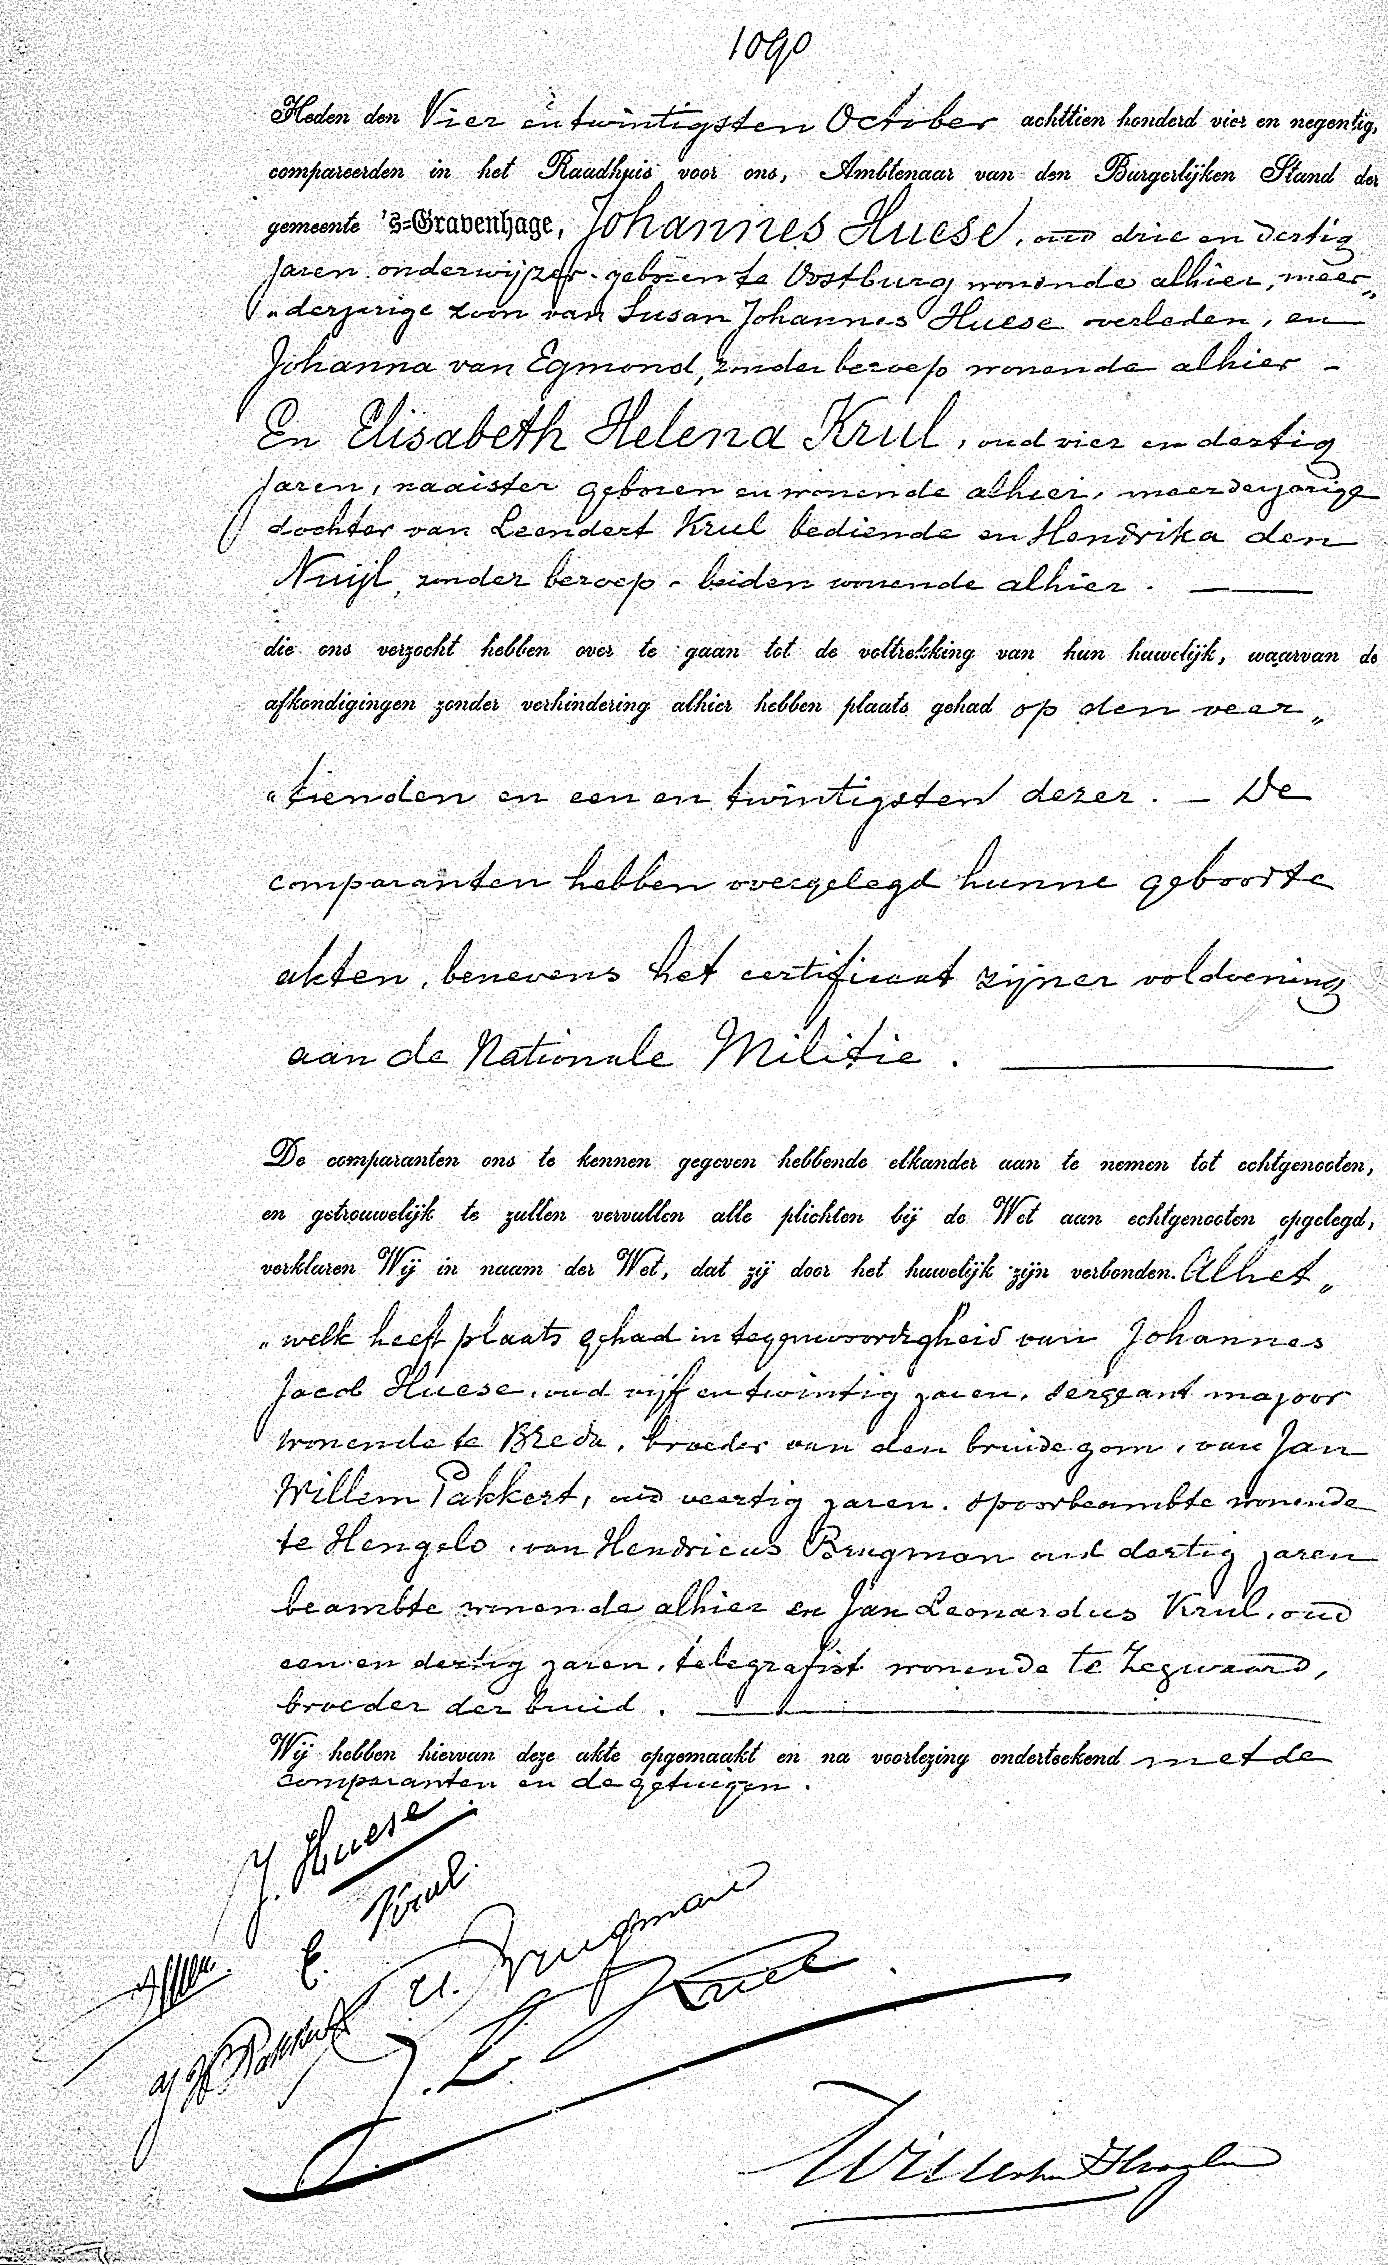 1090
Heden den Vier en twintigsten October achttien honderd vier en negentig,
compareerden in het Raadhuis voor ons, Ambtenaar van den Burgerlijken Stand der
gemeente 's-Gravenhage, Johannes Huese, oud drie en dertig
jaren onderwijzer geboren te Oostburg wonende alhier, meer„
„derjarige zoon van Susan Johannes Huese overleden, en
Johanna van Egmond, zonder beroep wonende alhier –
En Elisabeth Helena Krul, oud vier en dertig
jaren, naaister geboren en wonende alhier, meerderjarige
dochter van Leendert Krul bediende en Hendrika den
Nuijl, zonder beroep - beiden wonende alhier. —
die ons verzocht hebben over te gaan tot de voltrekking van hun huwelijk, waarvan de
afkondigingen zonder verhindering alhier hebben plaats gehad op den veer„
„tienden en een en twintigsten dezer. – De
comparanten hebben overgelegd hunne geboorte
akten, benevens het certificaat zijner voldoening
aan de Nationale Militie. —
De comparanten ons te kennen gegeven hebbende elkander aan te nemen tot echtgenooten,
en getrouwelijk te zullen vervullen alle plichten bij de Wet aan echtgenooten opgelegd,
verklaren Wij in naam der Wet, dat zij door het huwelijk zijn verbonden. Alhet„
„welk heeft plaats gehad in tegenwoordigheid van Johannes
Jacob Huese, oud vijf en twintig jaren, sergeant majoor
wonende te Breda, broeder van den bruidegom, van Jan
Willem Pakkert, oud veertig jaren, spoorbeambte wonende
te Hengelo, van Hendricus Brugman oud dertig jaren
beambte wonende alhier en Jan Leonardus Krul, oud
een en dertig jaren, telegrafist wonende te Zegwaard,
broeder der bruid. —
Wij hebben hiervan deze akte opgemaakt en na voorlezing onderteekend met de
comparanten en de getuigen.
J. Huese
E. Krul
H. Brugman
JW Pakkert
J. L. Krul.